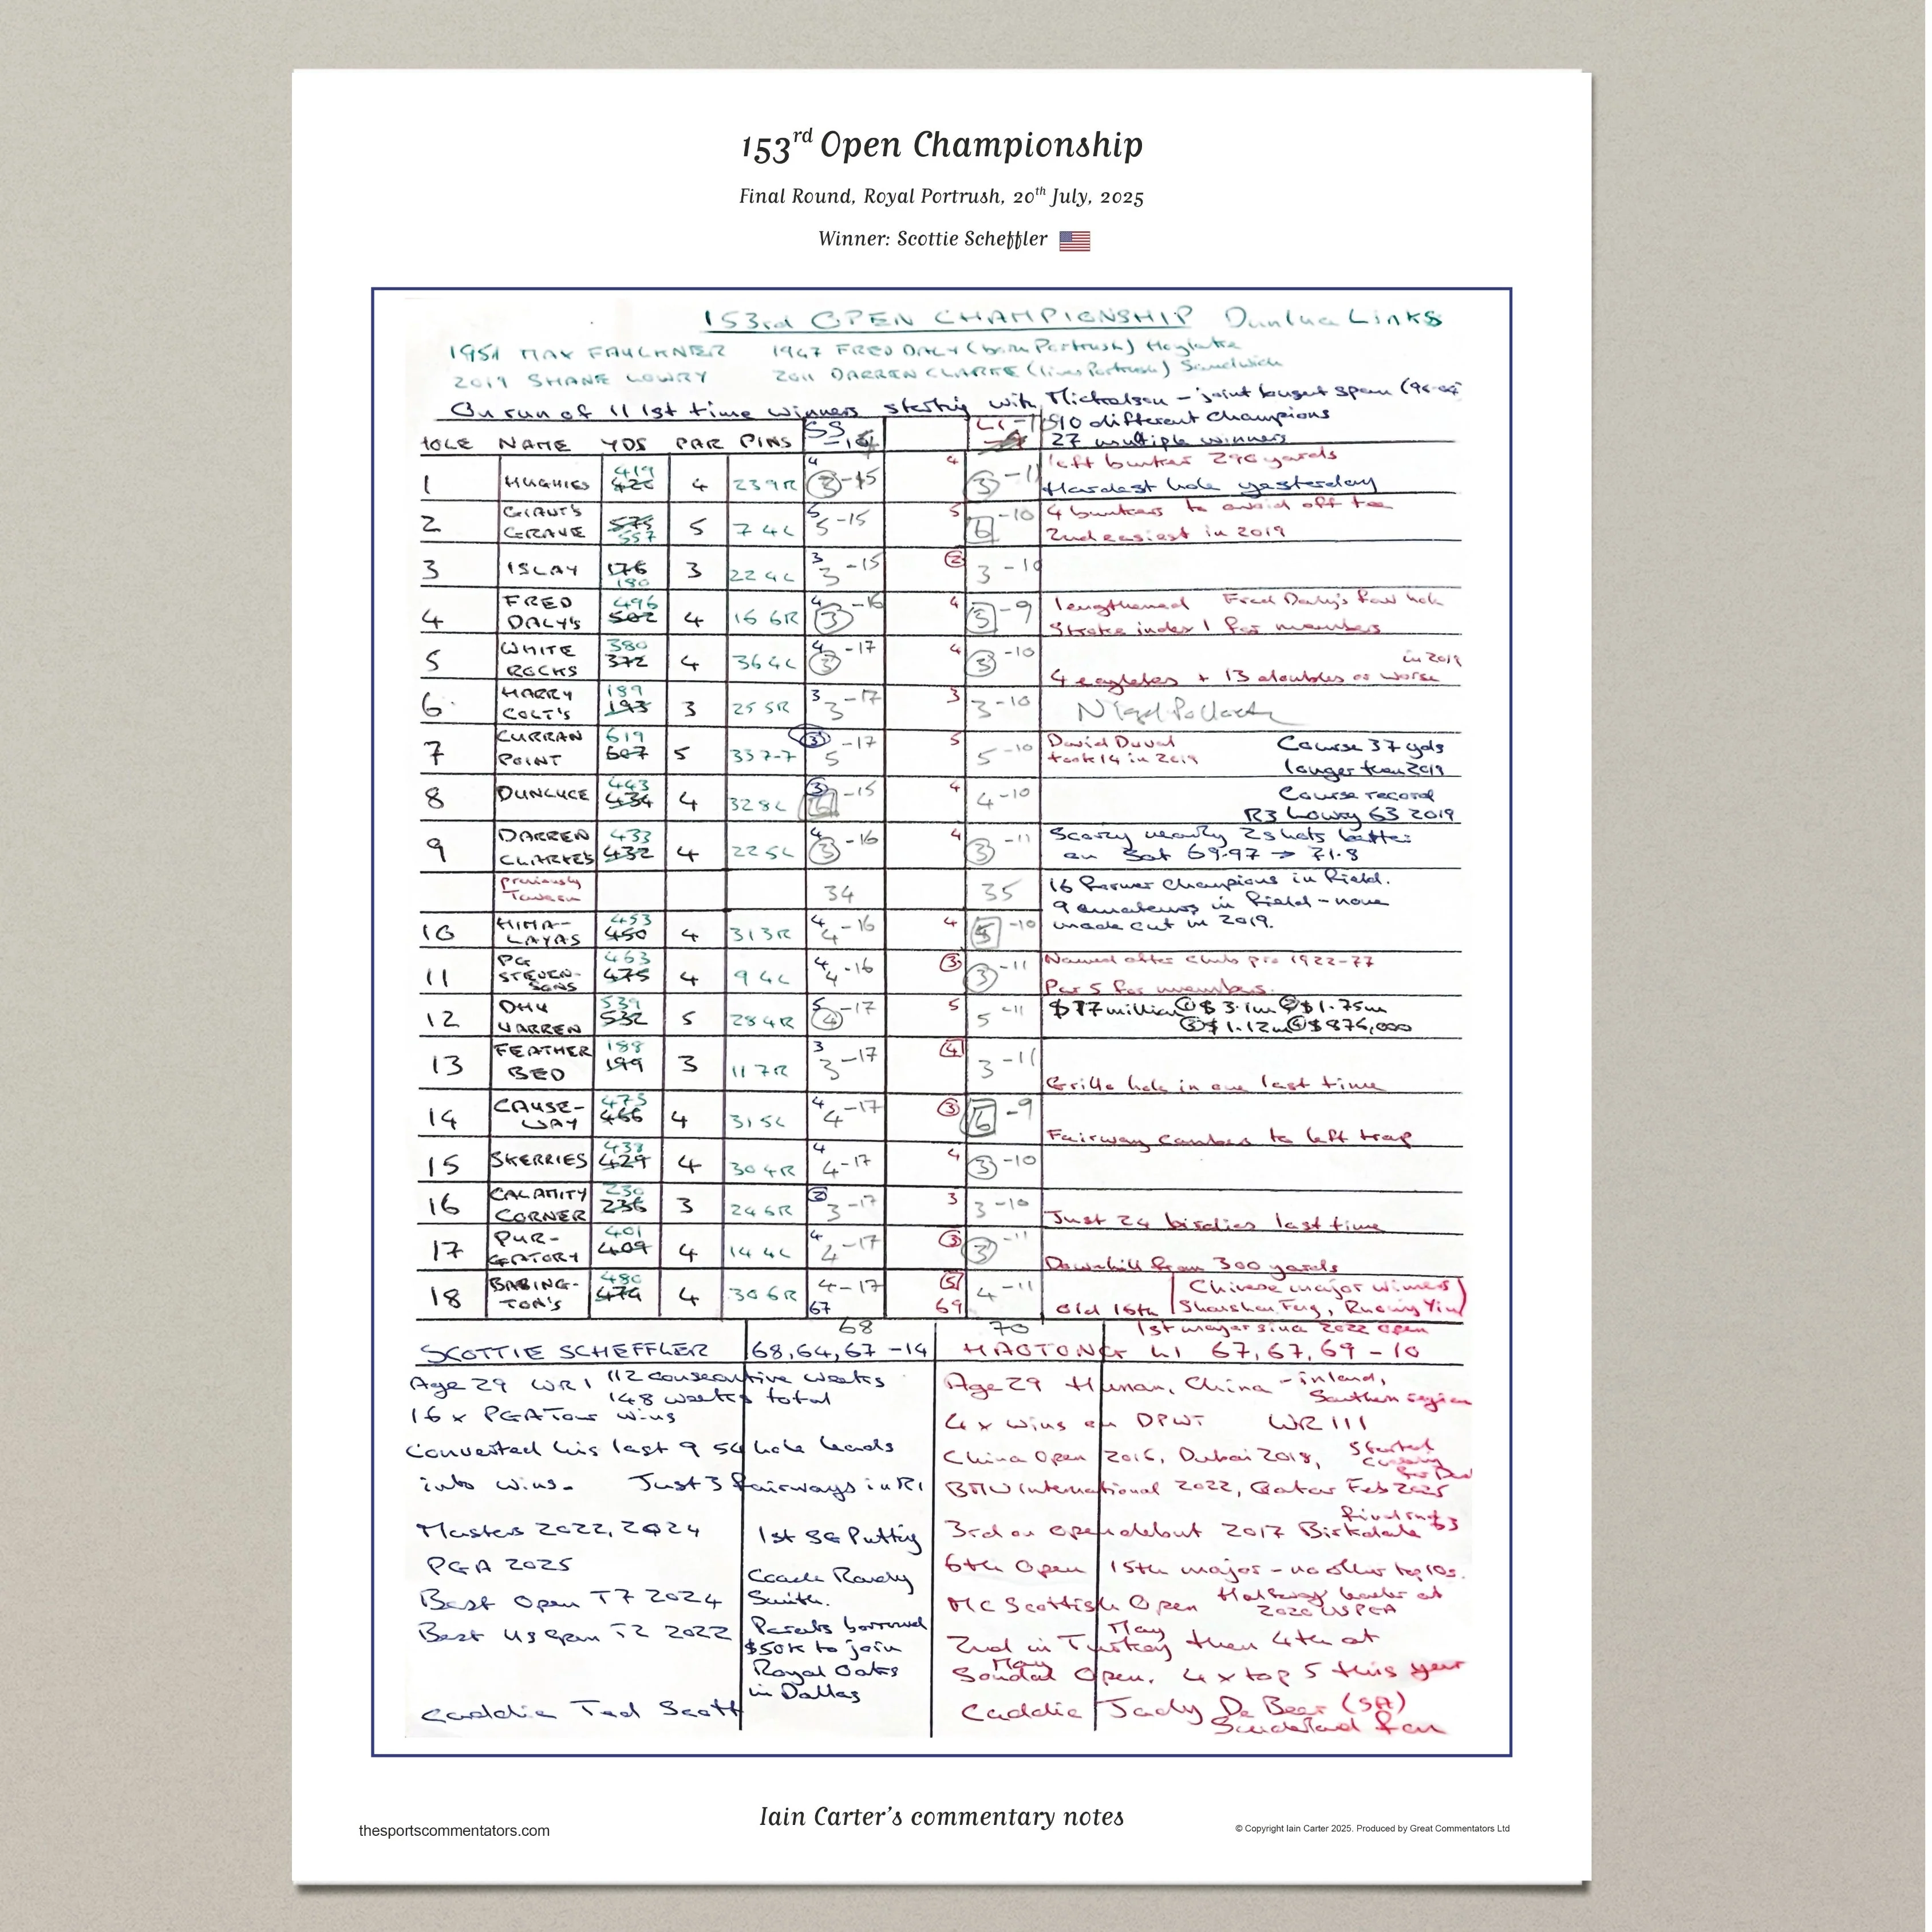 153rd Open Championship
Final Round, Royal Portrush, 20th July, 2025
Winner: Scottie Scheffler
153rd OPEN CHAMPIONSHIP Dunluce Links
1951 MAX FAULKNER 1947 FRED DALY (born Portrush) Hoylake
2019 SHANE LOWRY 2011 DARREN CLARKE (lives Portrush) Sandwich
On run of 11 1st time winners starting with Mickelson - joint longest span
90 different champions
27 multiple winners
HOLE NAME YDS PAR PINS SS LI
1 HUGHIES 419 426 4 23 9R 4 3 -15 4 3 -11 left bunker 296 yards
Hardest hole yesterday
2 GIANT'S GRAVE 575 557 5 7 4L 5 5 -15 5 6 -10 4 bunkers to avoid off tee
2nd easiest in 2019
3 ISLAY 176 180 3 22 4L 3 3 -15 2 3 -10
4 FRED DALY'S 496 502 4 16 6R 4 3 -16 4 5 -9 lengthened Fred Daly's fav hole
Stroke index 1 for members
5 WHITE ROCKS 380 372 4 36 4L 4 3 -17 4 3 -10 in 2019
4 eagles + 13 doubles or worse
6 HARRY COLT'S 189 193 3 25 5R 3 3 -17 3 3 -10
7 CURRAN POINT 619 607 5 33 7-7 3 5 -17 5 5 -10 David Duval
took 14 in 2019
Course 37 yds
longer than 2019
8 DUNLUCE 443 434 4 32 8L 3 6 -15 4 4 -10 Course record
R3 Lowry 63 2019
9 DARREN CLARKE'S 433 432 4 22 5L 4 3 -16 4 3 -11 Scoring nearly 2 shots better
on Sat 69.97 → 71.8
previously 34 35 16 former champions in field.
9 amateurs in field - none
made cut in 2019.
10 HIMA-LAYAS 453 450 4 31 3R 4 4 -16 4 5 -10
11 PG STEVEN-SONS 463 475 4 9 4L 4 4 -16 3 3 -11 Named after club pro 1922-77
Par 5 for members.
12 DHU VARREN 539 532 5 28 4R 5 4 -17 5 5 -11 $17 million ① $3.1m ② $1.75m
③ $1.12m ④ $876,000
13 FEATHER BED 188 199 3 11 7R 3 3 -17 4 3 -11
Grillo hole in one last time
14 CAUSE-WAY 473 466 4 31 5L 4 4 -17 3 6 -9
Fairway cambers to left trap
15 SKERRIES 433 429 4 30 4R 4 4 -17 4 3 -10
16 CALAMITY CORNER 230 236 3 24 6R 2 3 -17 3 3 -10
Just 24 birdies last time
17 PUR-GATORY 401 409 4 14 4L 4 4 -17 3 3 -11
Downhill from 300 yards
18 BABING-TON'S 480 474 4 30 6R 4 -17 5 4 -11
67 69 Old 16th
Chinese major winners
Shanshan Feng, Ruoning Yin
68 70 1st major since 2022 Open
SCOTTIE SCHEFFLER 68, 64, 67 -14 HAOTONG LI 67, 67, 69 -10
Age 29 WR1 112 consecutive weeks
148 weeks total
16 x PGA Tour wins
Converted his last 9 54 hole leads
into wins. Just 3 fairways in R1
Masters 2022, 2024
PGA 2025
Best Open T7 2024
Best US Open T2 2022
Caddie Ted Scott
1st SG Putting
Coach Randy
Smith.
Parents borrowed
$50k to join
Royal Oaks
in Dallas
Age 29 Hunan, China - inland,
Southern region
4 x wins on DPWT WR 111
China Open 2016, Dubai 2018,
BMW International 2022, Qatar Feb 2025
3rd on Open debut 2017 Birkdale
final rnd 63
6th Open 15th major - no other top 10s.
MC Scottish Open Halfway leader at
2020 USPGA
2nd in Turkey May then 4th at
Soudal Open. May 4 x top 5 this year
Caddie Jady De Beer (SA)
Sunderland fan
Iain Carter's commentary notes
thesportscommentators.com
© Copyright Iain Carter 2025. Produced by Great Commentators Ltd